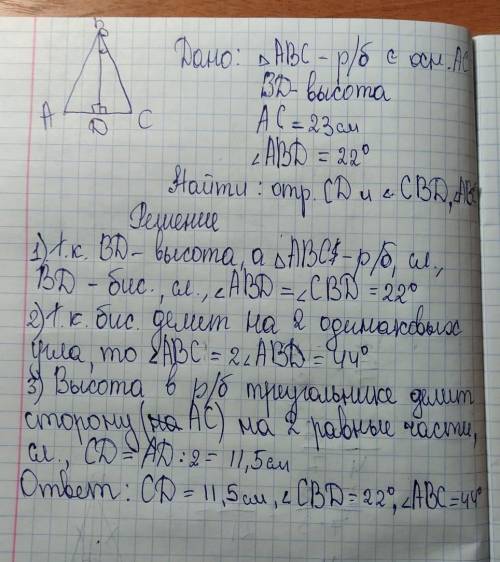 B
A
D
C
Дано: △ABC - р/б с осн. AC
BD - высота
AC = 23 см
∠ABD = 22°
Найти: отр. CD и ∠CBD, ∠ABC
Решение
1) Т.к. BD - высота, а △ABC - р/б, сл.,
BD - бис., сл., ∠ABD = ∠CBD = 22°
2) Т.к. бис. делит на 2 одинаковых
угла, то ∠ABC = 2∠ABD = 44°
3) Высота в р/б треугольнике делит
сторону (на AC) на 2 равные части,
сл., CD = AD : 2 = 11,5 см
Ответ: CD = 11,5 см, ∠CBD = 22°, ∠ABC = 44°